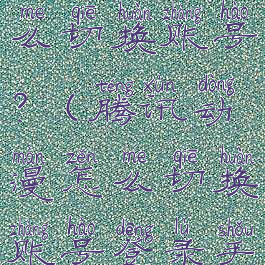 me qiē huàn zhàng hào
么切换账号
téng xùn dòng
？（腾讯动
màn zěn me qiē huàn
漫怎么切换
zhàng hào dēng lù shǒu
账号登录手